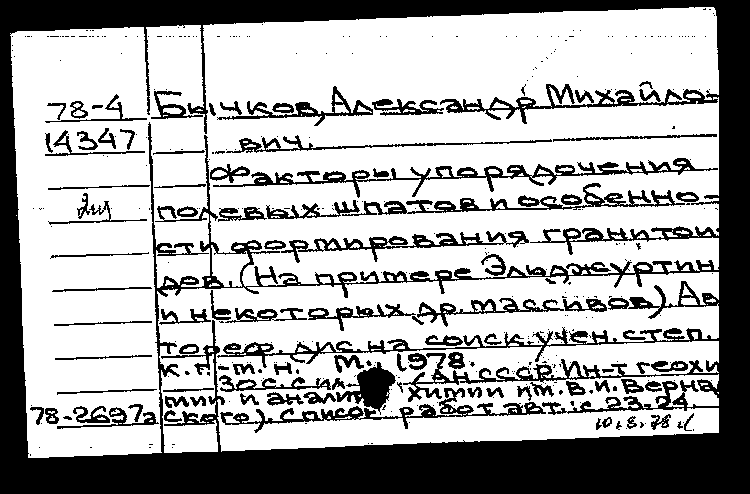 78-4 Бычков, Александр Михайло-
14347 вич.
Факторы упорядочения
полевых шпатов и особенно-
сти формирования гранитои-
дов. (На примере Эльджуртин
и некоторых др. массивов) Ав
тореф. дис. на соиск. учен. степ.
к. г.-м. н. М., 1978.
30 с. с ил. (АН СССР Ин-т геохи
мии и аналит химии им. В.И. Верна
78-2697а ского). Список работ авт.: с 23-24.
10.8.78